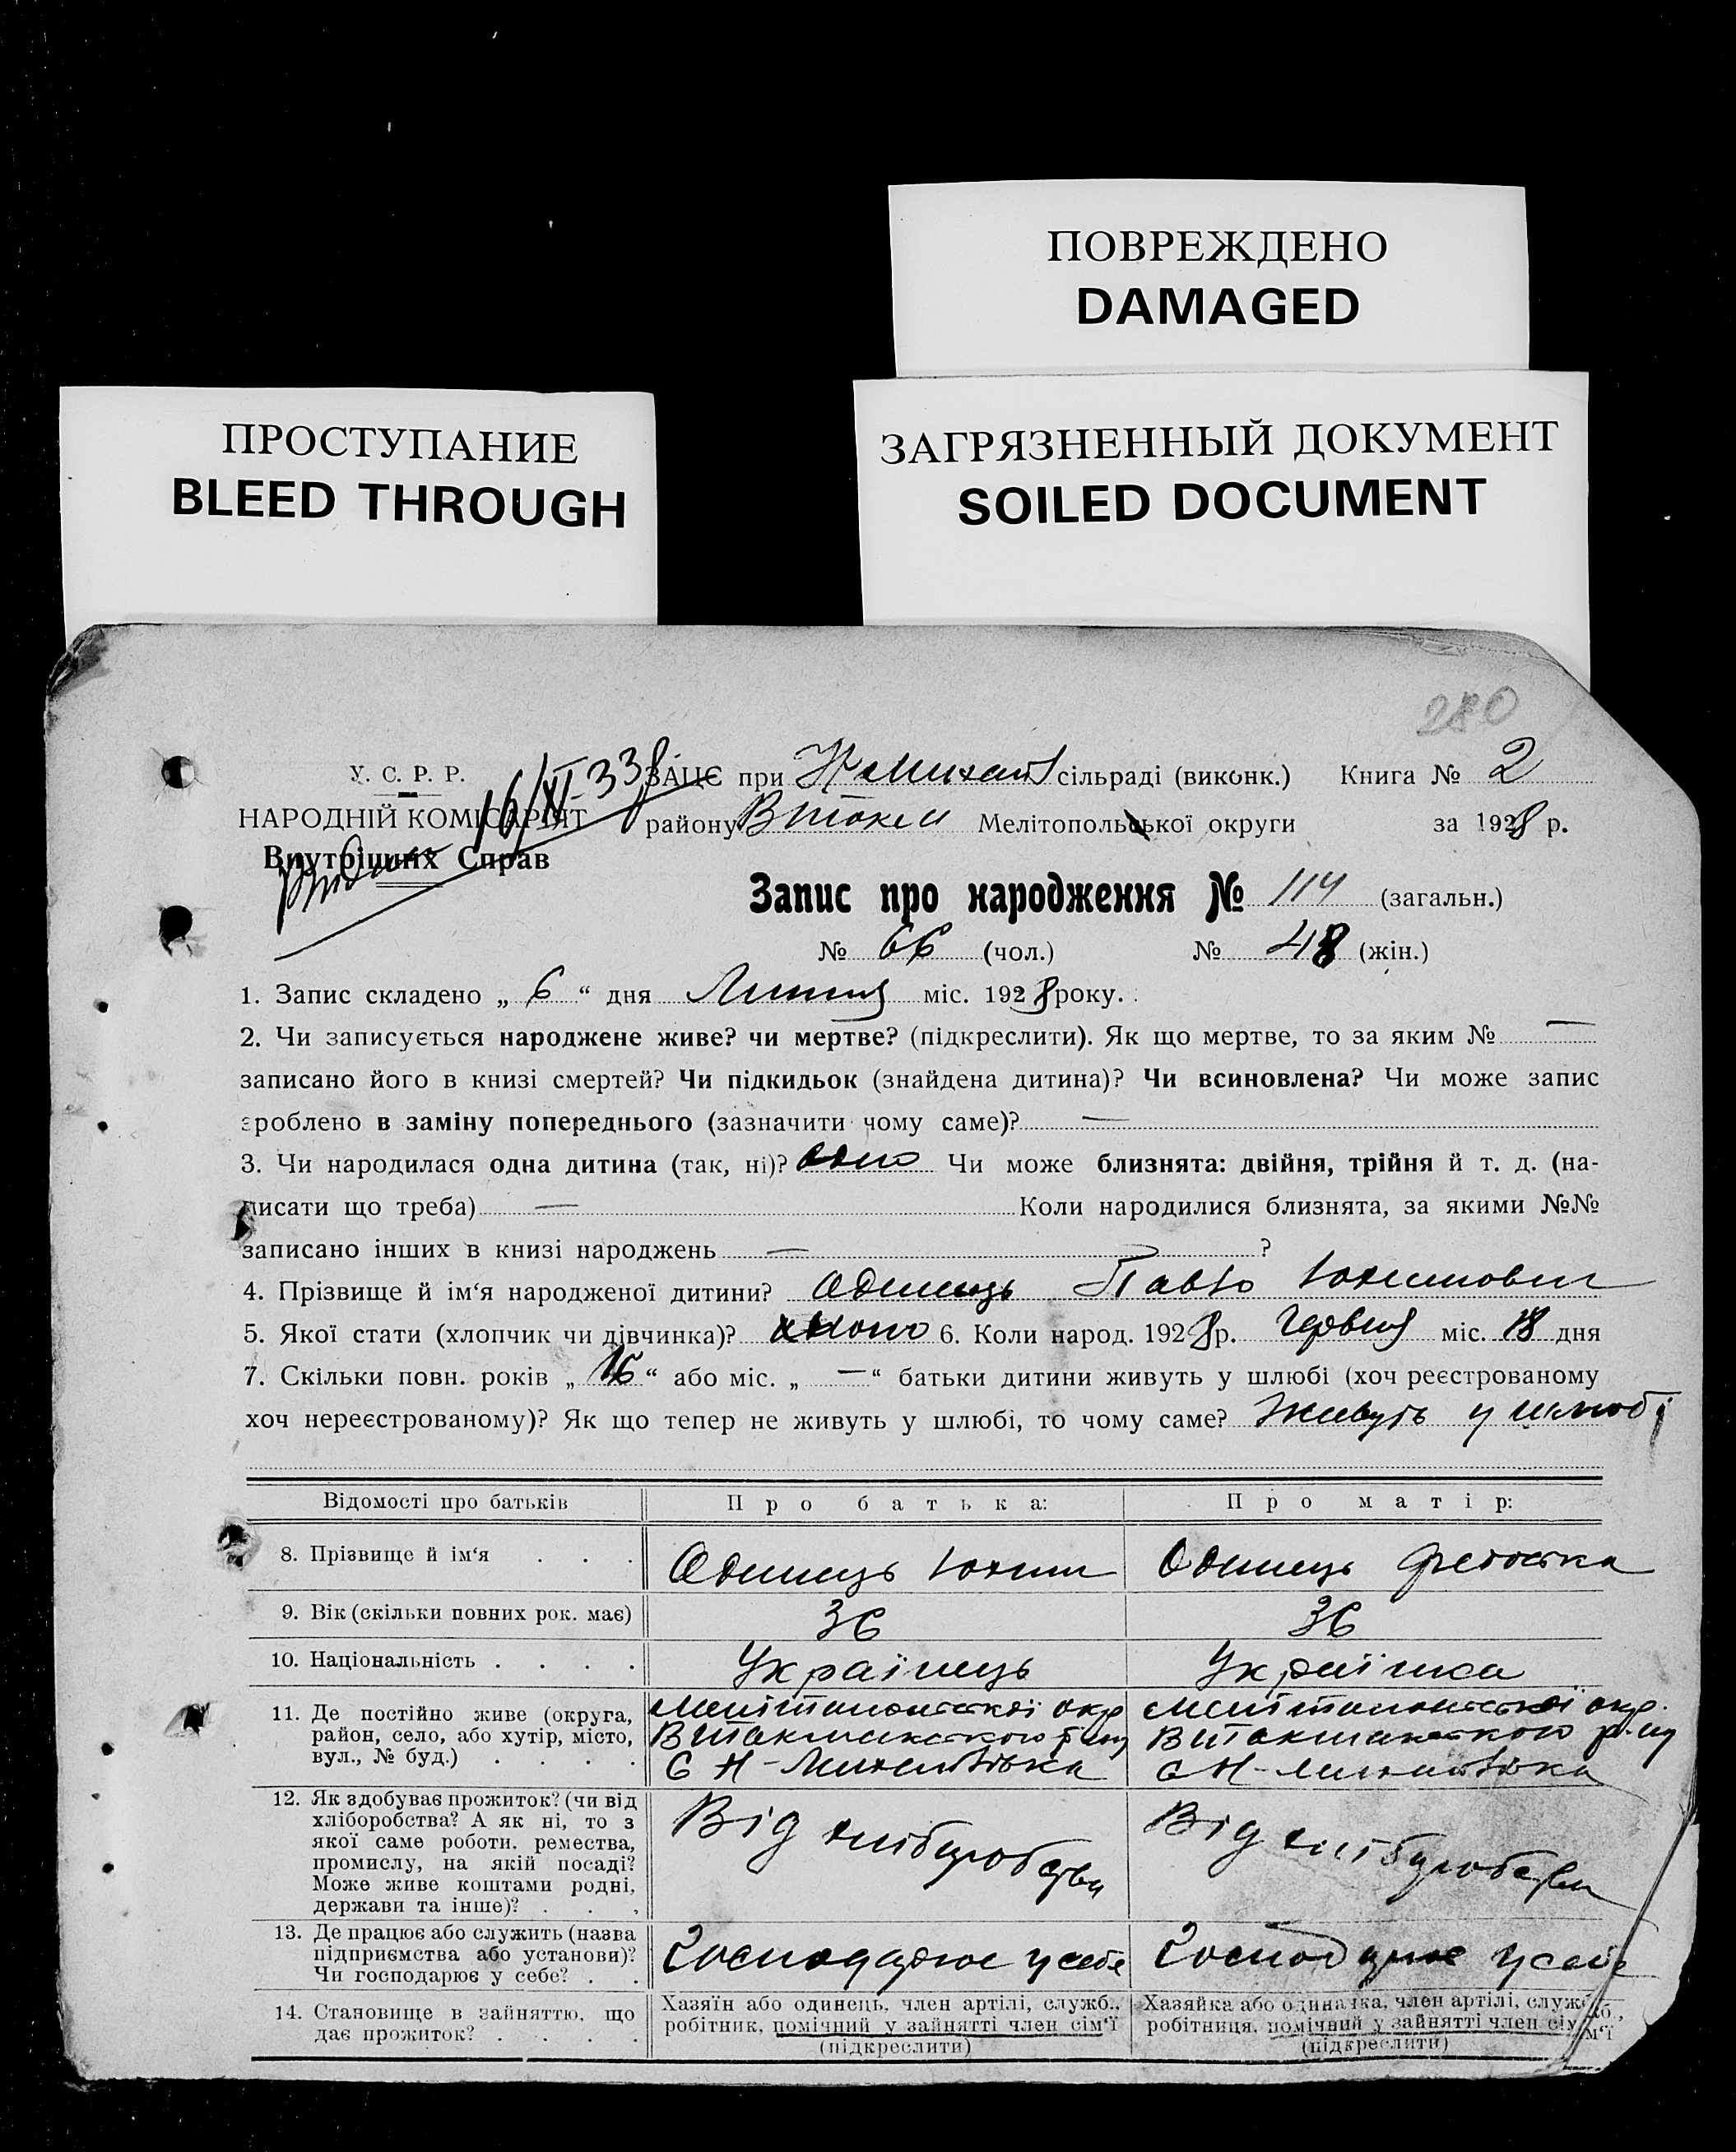 ПОВРЕЖДЕНО
DAMAGED
ПРОСТУПАНИЕ
BLEED THROUGH
ЗАГРЯЗНЕННЫЙ ДОКУМЕНТ
SOILED DOCUMENT
280
У. С. Р. Р.
НАРОДНІЙ КОМІСАРІЯТ
Внутрішніх Справ
16/XI-33
ЗАЦС при Н Михайл сільраді (виконк.) Книга № 2
району В Токм Мелітопольської округи за 1928 р.
Запис про народження № 114 (загальн.)
№ 66 (чол.) № 48 (жін.)
1. Запис складено „ 6 “ дня Липня міс. 1928 року.
2. Чи записується народжене живе? чи мертве? (підкреслити). Як що мертве, то за яким № —
записано його в книзі смертей? Чи підкидьок (знайдена дитина)? Чи всиновлена? Чи може запис
зроблено в заміну попереднього (зазначити чому саме)? —
3. Чи народилася одна дитина (так, ні)? одно Чи може близнята: двійня, трійня й т. д. (на-
писати що треба) — Коли народилися близнята, за якими №№
записано інших в книзі народжень — ?
4. Прізвище й ім‘я народженої дитини? Одинець Павло Юхимович
5. Якої стати (хлопчик чи дівчинка)? 6. Коли народ. 1928 р. Червня міс. 18 дня
7. Скільки повн. років „ 16 “ або міс. „ — “ батьки дитини живуть у шлюбі (хоч реєстрованому
хоч нереєстрованому)? Як що тепер не живуть у шлюбі, то чому саме? Живуть у шлюбі
Відомості про батьків Про батька: Про матір:
8. Прізвище й ім‘я . . . Одинець Юхим Одинець Федоська
9. Вік (скільки повних рок. має) 36 36
10. Національність . . . . Українець Українка
11. Де постійно живе (округа,
район, село, або хутір, місто,
вул., № буд.) . . . .
Мелітопольської окр
В Токмакського р-ну
С Н-Михайлівка
Мелітопольської окр.
В Токмакського р-ну
с Н-Михайлівка
12. Як здобуває прожиток? (чи від
хліборобства? А як ні, то з
якої саме роботи, ремества,
промислу, на якій посаді?
Може живе коштами родні,
держави та інше)? . . .
Від хліборобства
Від хліборобства
13. Де працює або служить (назва
підприємства або установи)?
Чи господарює у себе? . .
Господарює у себе
Господарює у себе
14. Становище в зайняттю, що
дає прожиток? . . . .
Хазяїн або одинець, член артілі, служб.,
робітник, помічний у зайнятті член сім‘ї
(підкреслити)
Хазяйка або одиначка, член артілі, служб.,
робітниця, помічний у зайнятті член сім‘ї
(підкреслити)